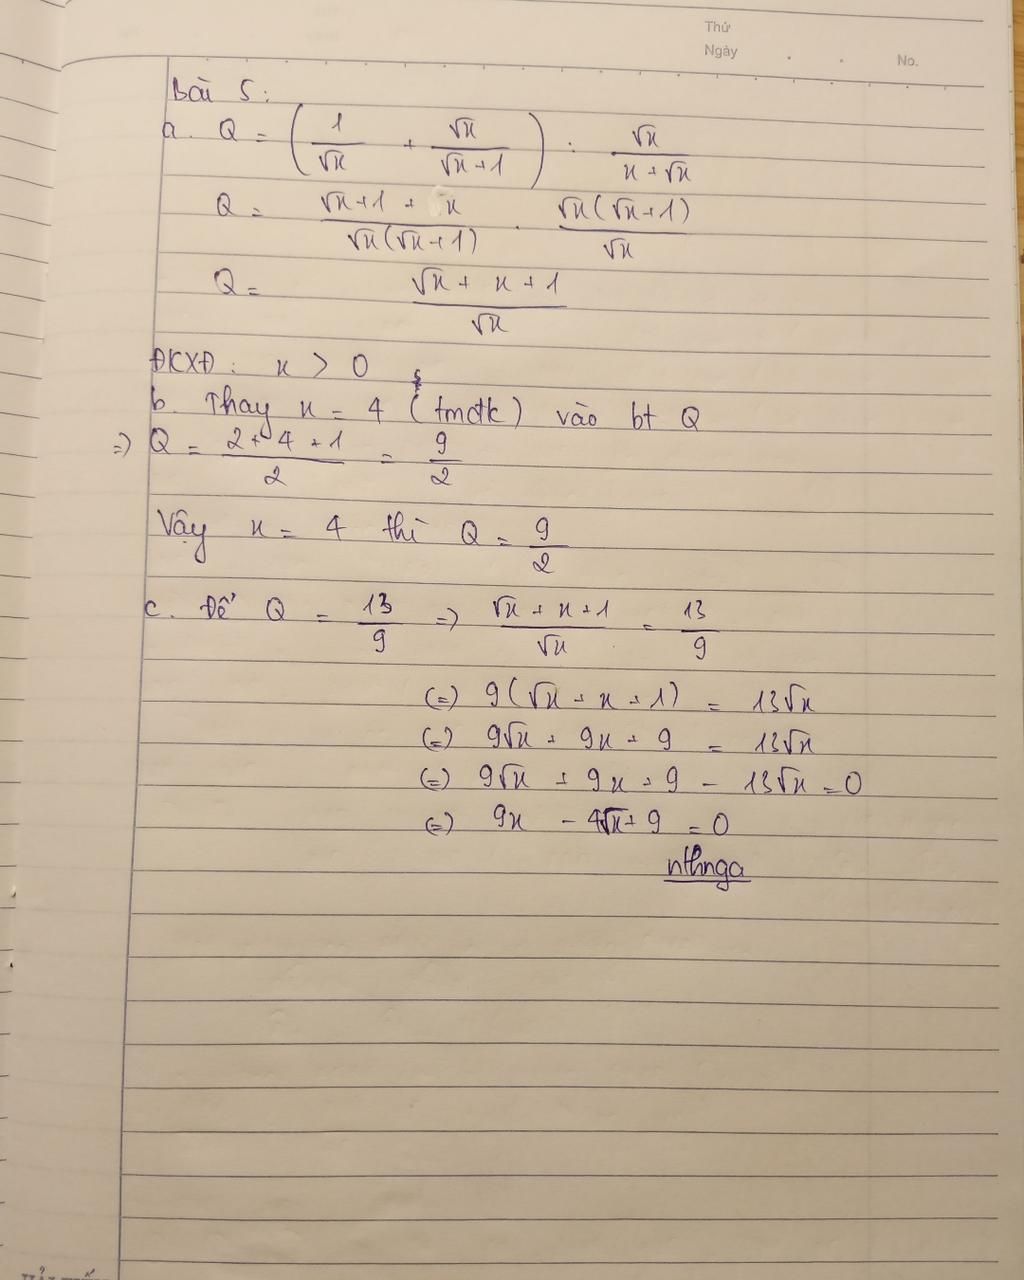 Thứ
Ngày . . No.
Bài 5:
a. Q = (1/√x + √x/(√x+1)) : √x/(x+√x)
Q = (√x+1 + x)/(√x(√x+1)) . √x(√x+1)/√x
Q = (√x + x + 1)/√x
ĐKXĐ : x > 0
b. Thay x = 4 (tmđk) vào bt Q
=> Q = (2+4+1)/2 = 9/2
Vậy x = 4 thì Q = 9/2
c. Để Q = 13/9 => (√x + x + 1)/√x = 13/9
(=) 9(√x + x + 1) = 13√x
(=) 9√x + 9x + 9 = 13√x
(=) 9√x + 9x + 9 - 13√x = 0
(=) 9x - 4√x + 9 = 0
nthnga